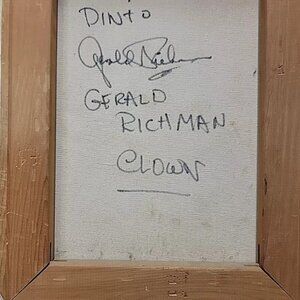 DINTO
Gerald Richman
GERALD
RICHMAN
CLOWN